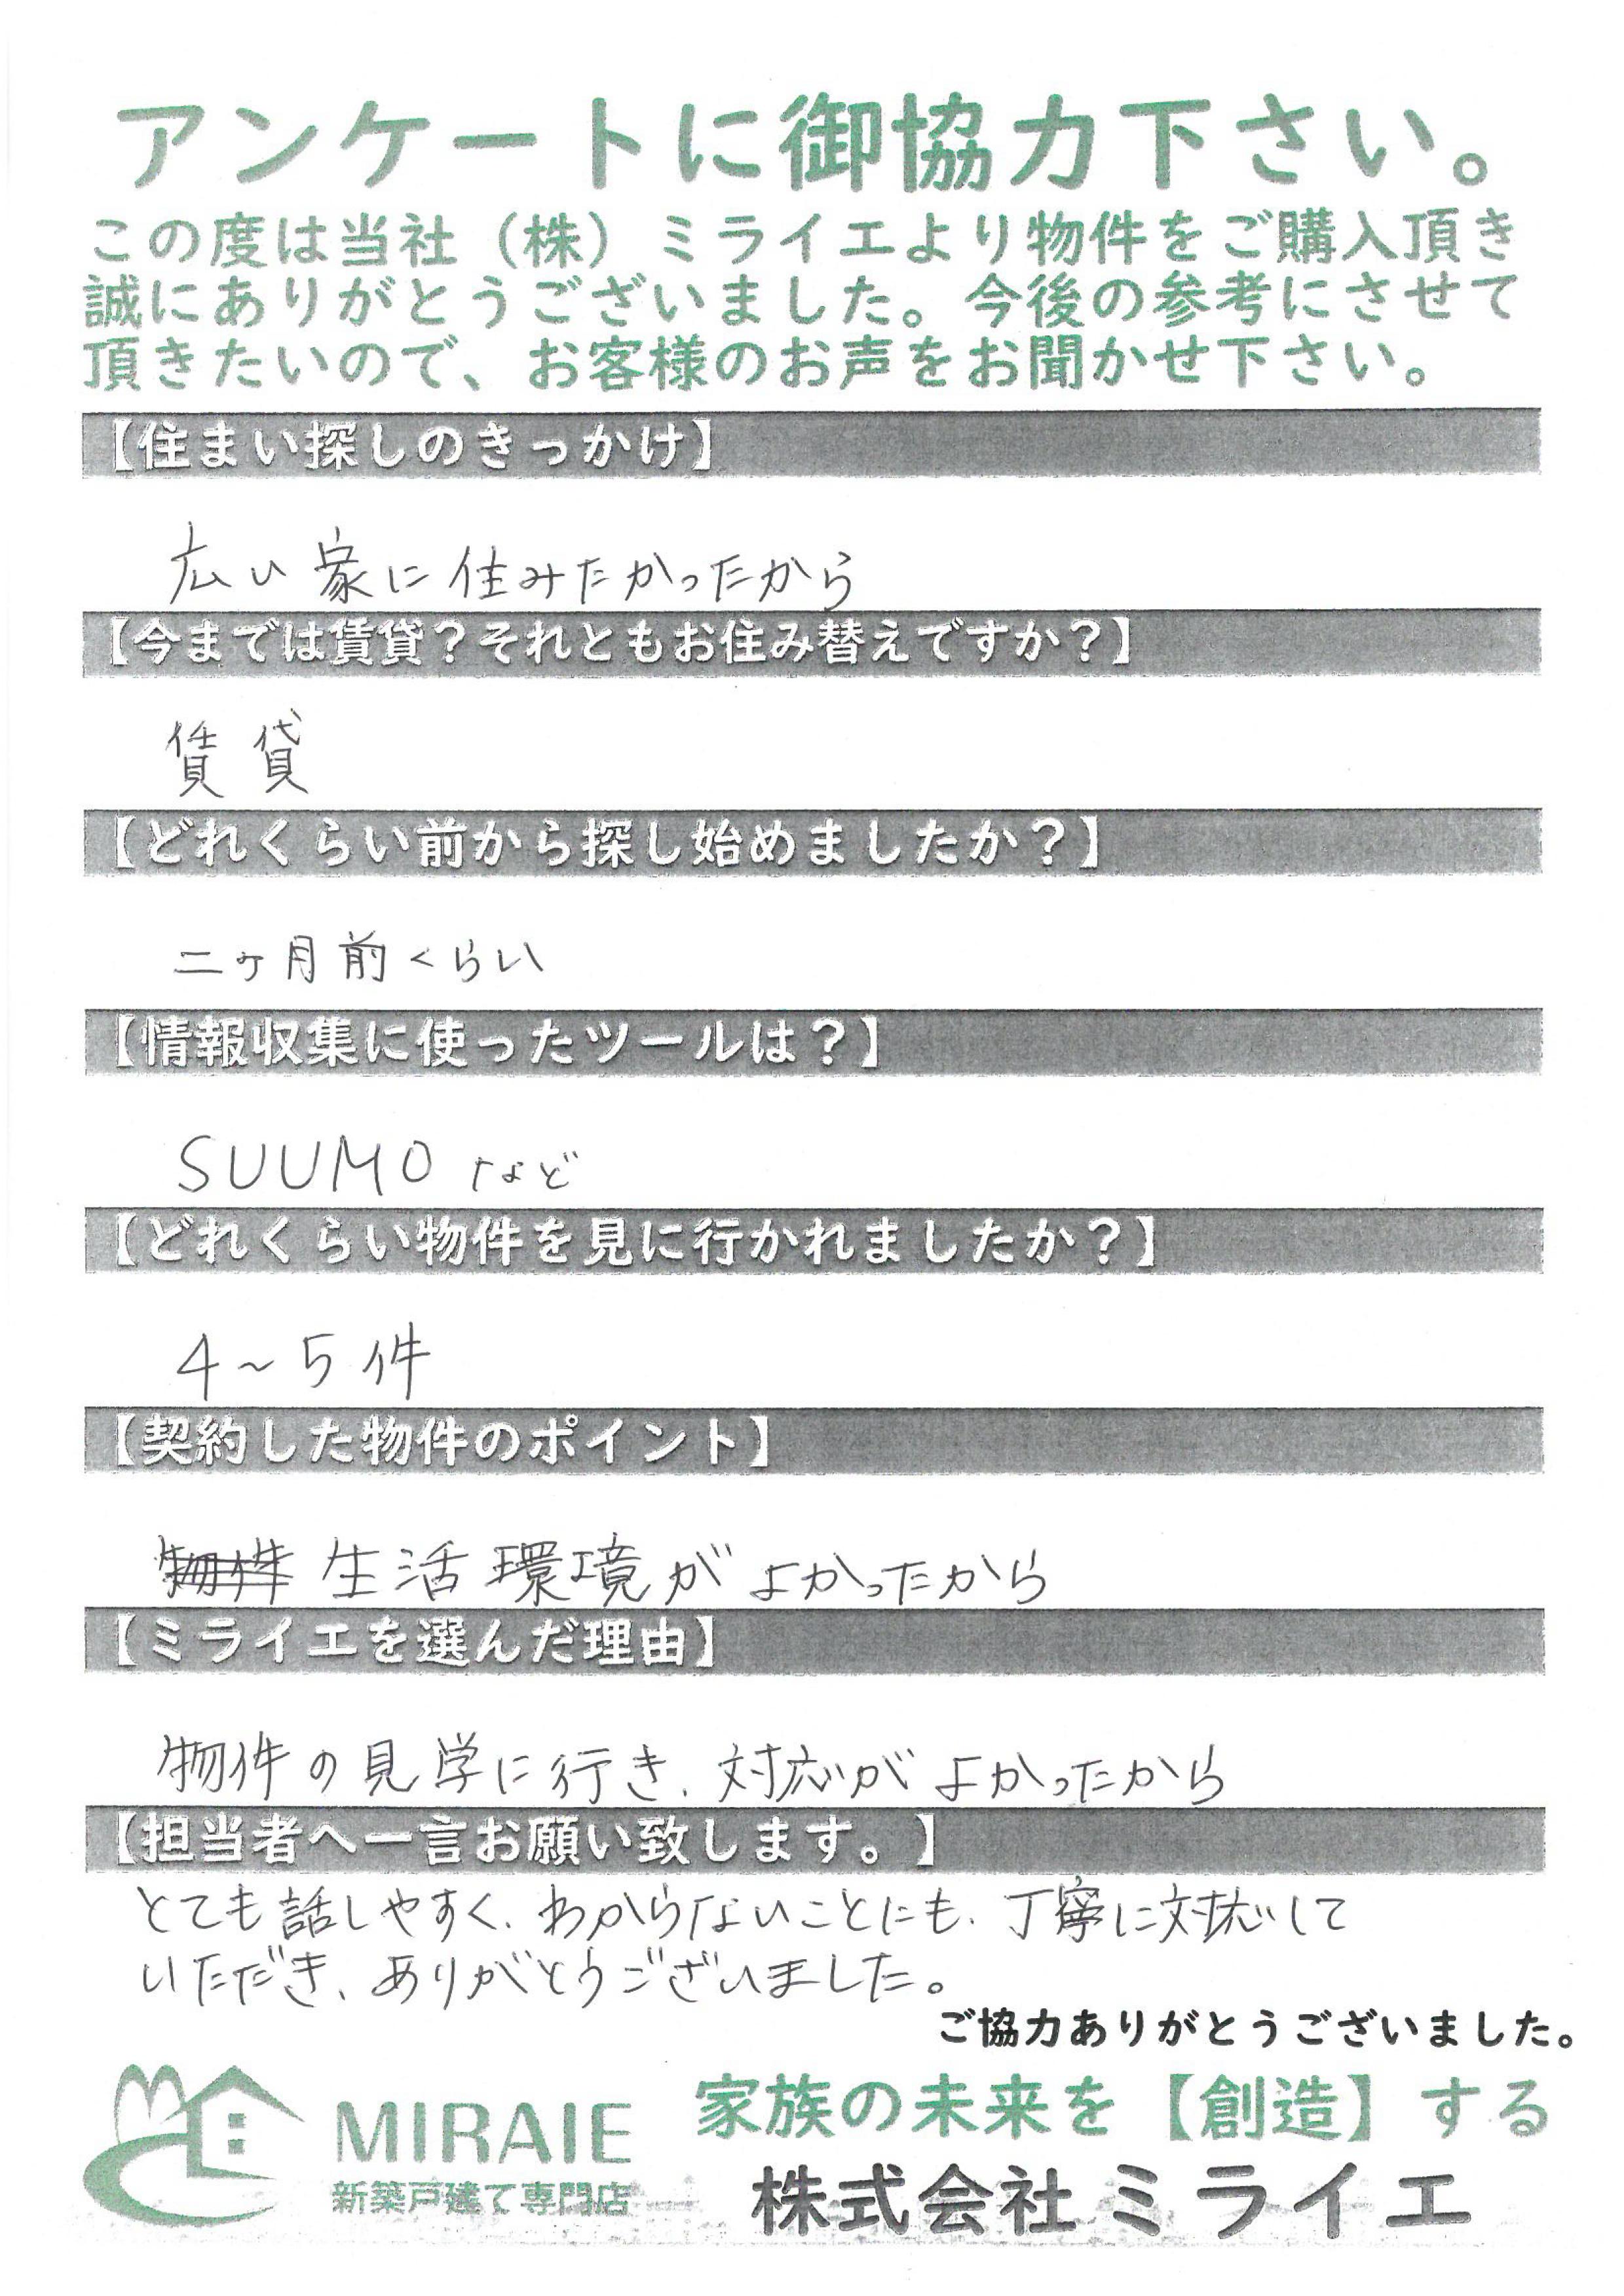 アンケートに御協力下さい。
この度は当社（株）ミライエより物件をご購入頂き
誠にありがとうございました。今後の参考にさせて
頂きたいので、お客様のお声をお聞かせ下さい。
【住まい探しのきっかけ】
広い家に住みたかったから
【今までは賃貸？それともお住み替えですか？】
賃貸
【どれくらい前から探し始めましたか？】
二ヶ月前くらい
【情報収集に使ったツールは？】
SUUMOなど
【どれくらい物件を見に行かれましたか？】
4～5件
【契約した物件のポイント】
物件 生活環境がよかったから
【ミライエを選んだ理由】
物件の見学に行き、対応がよかったから
【担当者へ一言お願い致します。】
とても話しやすく、わからないことにも、丁寧に対応して
いただき、ありがとうございました。
ご協力ありがとうございました。
MIRAIE
新築戸建て専門店
家族の未来を【創造】する
株式会社ミライエ